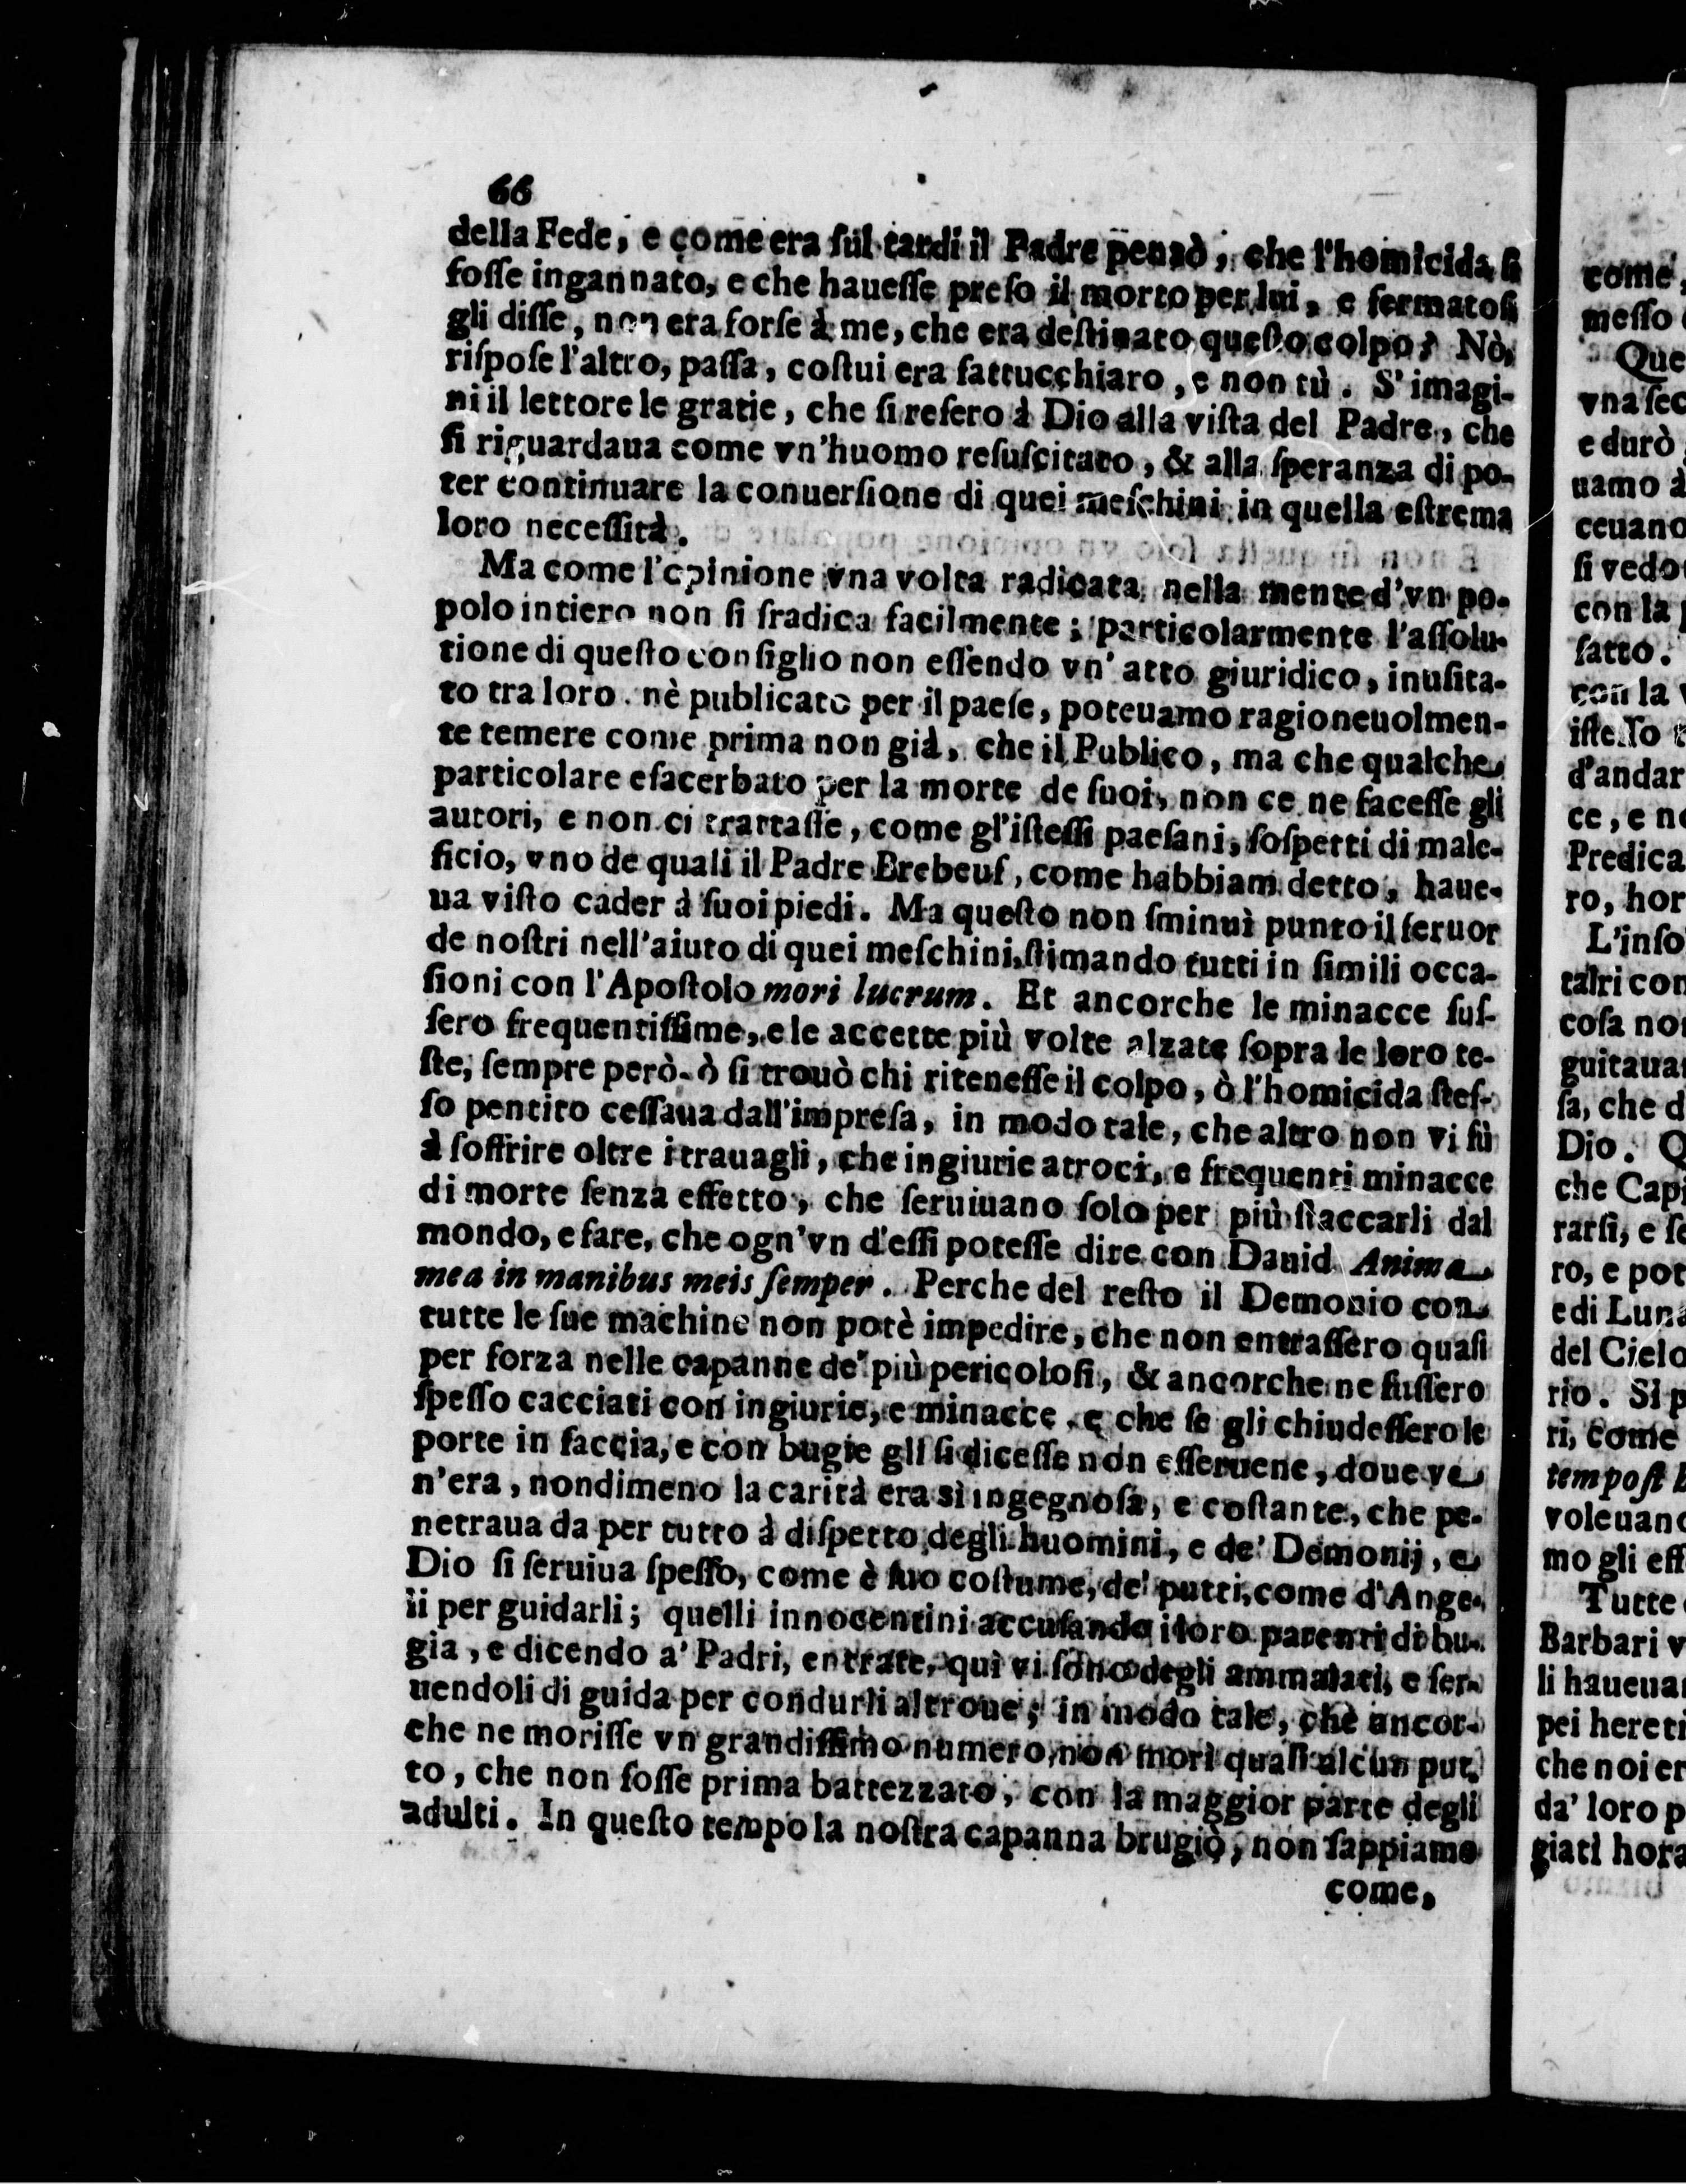 66
della Fede, e come era ſul tardi il Padre penzò, che l'homicida ſi
foſſe ingannato, e che haueſſe preſo il morto per lui, e fermatoſi
gli diſſe, non era forſe à me, che era deſtinato queſto colpo? Nò,
riſpoſe l'altro, paſſa, coſtui era fattucchiaro, e non tù. S'imagi-
ni il lettore le gratie, che ſi reſero à Dio alla viſta del Padre, che
ſi riguardaua come vn'huomo reſuſcitato, & alla ſperanza di po-
ter continuare la conuerſione di quei meſchini in quella eſtrema
loro neceſſità.
Ma come l'opinione vna volta radicata nella mente d'vn po-
polo intiero non ſi ſradica facilmente; particolarmente l'aſſolu-
tione di queſto conſiglio non eſſendo vn' atto giuridico, inuſita-
to tra loro. nè publicato per il paeſe, poteuamo ragioneuolmen-
te temere come prima non già, che il Publico, ma che qualche
particolare eſacerbato per la morte de ſuoi, non ce ne faceſſe gli
autori, e non ci trattaſſe, come gl'iſteſſi paeſani, ſoſpetti di male-
ficio, vno de quali il Padre Brebeuf, come habbiam detto, haue-
ua viſto cader à ſuoi piedi. Ma queſto non ſminuì punto il feruor
de noſtri nell'aiuto di quei meſchini, ſtimando tutti in ſimili occa-
ſioni con l'Apoſtolo mori lucrum. Et ancorche le minacce fuſ-
ſero frequentiſſime, e le accette più volte alzate ſopra le loro te-
ſte, ſempre però ò ſi trouò chi riteneſſe il colpo, ò l'homicida ſteſ-
ſo pentito ceſſaua dall'impreſa, in modo tale, che altro non vi fù
à ſoffrire oltre i trauagli, che ingiurie atroci, e frequenti minacce
di morte ſenza effetto, che ſeruiuano ſolo per più ſtaccarli dal
mondo, e fare, che ogn'vn d'eſſi poteſſe dire con Dauid Anima
mea in manibus meis ſemper. Perche del reſto il Demonio con
tutte le ſue machine non potè impedire, che non entraſſero quaſi
per forza nelle capanne de' più pericoloſi, & ancorche ne fuſſero
ſpeſſo cacciati con ingiurie, e minacce, e che ſe gli chiudeſſero le
porte in faccia, e con bugie gli ſi diceſſe non eſſeruene, doue ve
n'era, nondimeno la carità era sì ingegnoſa, e coſtante, che pe-
netraua da per tutto à diſpetto degli huomini, e de' Demonij, e
Dio ſi ſeruiua ſpeſſo, come è ſuo coſtume, de' putti, come d'Ange-
li per guidarli; quelli innocentini accuſando i loro parenti di bu-
gia, e dicendo a' Padri, entrate, quì vi ſono degli ammalati, e ſer-
uendoli di guida per condurli altroue; in modo tale, che ancor-
che ne moriſſe vn grandiſſimo numero, non morì quaſi alcun put-
to, che non foſſe prima battezzato, con la maggior parte degli
adulti. In queſto tempo la noſtra capanna brugiò, non ſappiamo
come,
come,
meſſo
Que
vna ſec
e durò
uamo à
ceuano
ſi vedo
con la
fatto.
con la
iſteſſo
d'andar
ce, e no
Predica
ro, hor
L'inſo
talri con
coſa no
guitaua
ſa, che d
Dio. Q
che Capi
rarſi, e ſe
ro, e pot
e di Luna
del Cielo
rio. Si p
ri, come
tempoſt
voleuano
mo gli eff
Tutte
Barbari v
li haueua
pei hereti
che noi er
da' loro p
giati hora